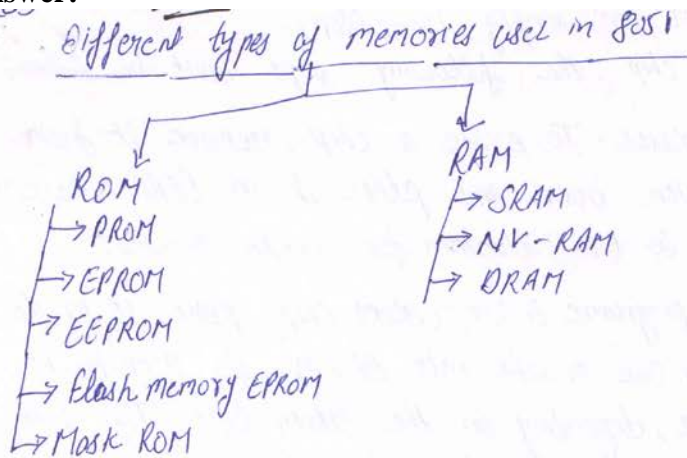 Different types of memories used in 8051
ROM
PROM
EPROM
EEPROM
Flash memory EPROM
Mask ROM
RAM
SRAM
NV-RAM
DRAM